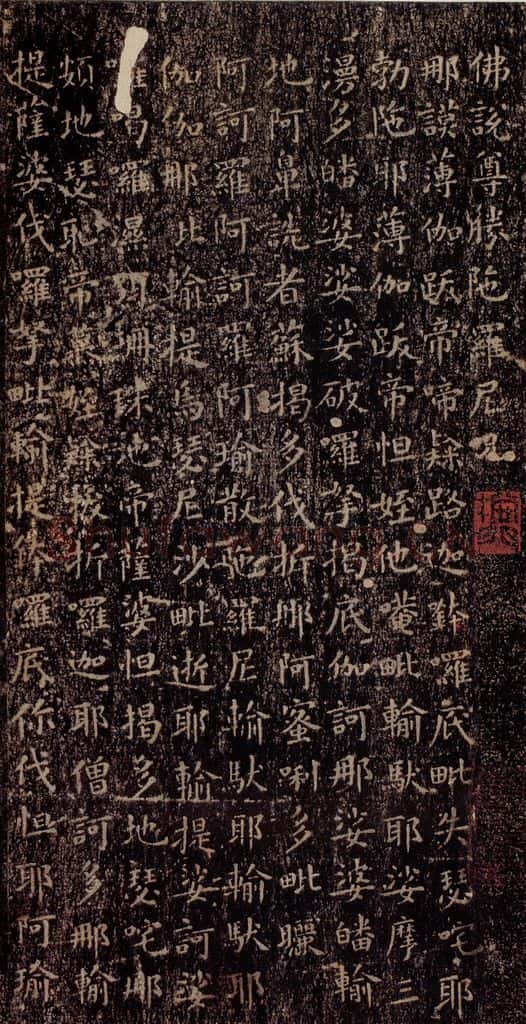 佛說尊勝陀羅尼咒
那謨薄伽跋帝啼隸路迦鉢囉底毗失瑟咤耶
勃陁耶薄伽跋帝怛姪他唵毗輸馱耶娑摩三
漫多皤婆娑娑破囉拏揭底伽訶那娑婆皤輸
地阿鼻詵者蘇揭多伐折那阿蜜唎多毗曬
阿訶羅阿訶羅阿瑜散陁羅尼輸馱耶輸馱耶
伽伽那比輸提烏瑟尼沙毗逝耶輸提娑訶娑
喝羅濕珊珠地帝薩婆怛揭多地瑟咤那
頞地瑟耻帝慕姪隸拔折囉迦耶僧訶多那輸
提薩婆伐囉拏毗輸提鉢羅底你伐怛耶阿瑜